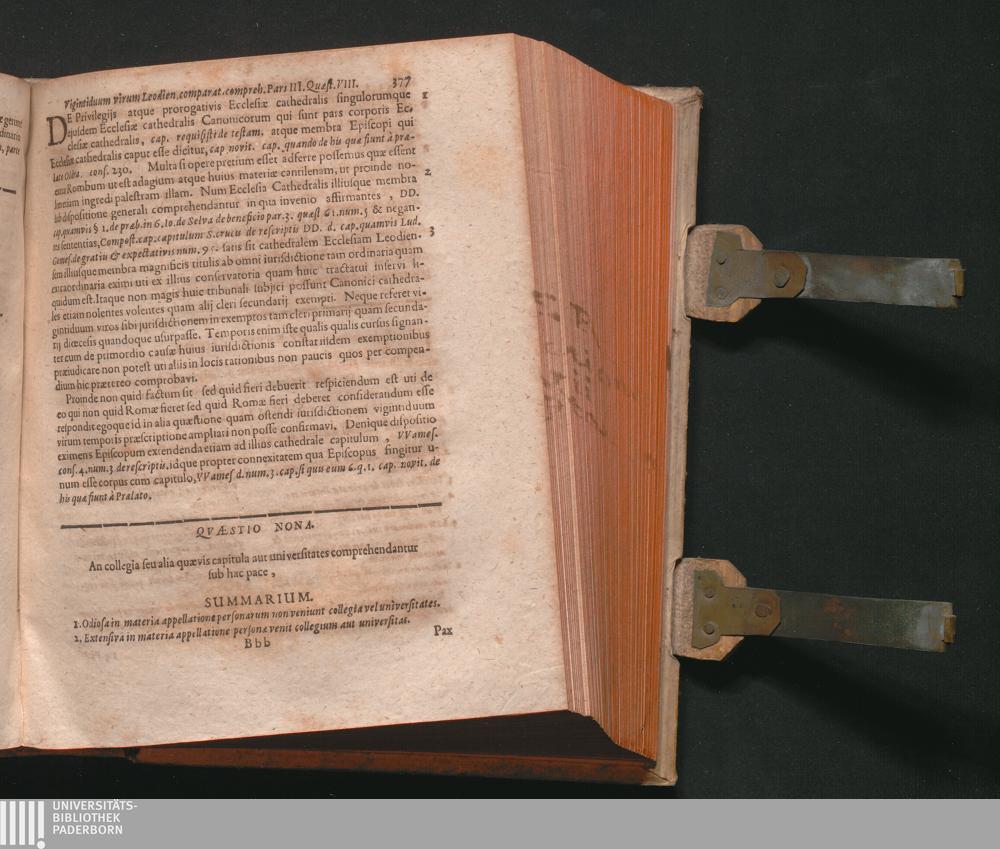 Vigintiduum virum Leodien. comparat. compreh. Pars III. Quæst. VIII. 377
DE Privilegijs atque prorogativis Ecclesiæ cathedralis singulorumque 1
ejusdem Ecclesiæ cathedralis Canonicorum qui sunt pars corporis Ec-
clesiæ cathedralis, cap. requisisti de testam. atque membra Episcopi qui
Ecclesiæ cathedralis caput esse dicitur, cap. novit. cap. quando de his quæ fiunt à præ-
lato Oldra. cons. 230. Multa si opere pretium esset adferre possemus quæ essent
extra Rombum ut est adagium atque huius materiæ cantilenam, ut proinde no-
ingredi palestram illam. Num Ecclesia Cathedralis illiusque membra 2
sub dispositione generali comprehendantur in qua invenio affirmantes, DD.
cap. quamvis § 1. de præb. in 6. Io. de Selva de beneficio par. 3. quæst 61. num. 5 & negan-
tes sententias, Compost. cap. capitulum S. crucis de rescriptis DD. d. cap. quamvis Lud.
Gomes. de gratiis & expectativis num. 95. satis sit cathedralem Ecclesiam Leodien- 3
sem illiusque membra magnificis titulis ab omni iurisdictione tam ordinaria quam
extraordinaria eximi uti ex illius conservatoria quam huic tractatui inservi li-
quidum est. Itaque non magis huic tribunali subjici possunt Canonici cathedra-
les etiam nolentes volentes quam alij cleri secundarij exempti. Neque referet vi-
gintiduum viros sibi jurisdictionem in exemptos tam cleri primarij quam secunda-
rij diœcesis quandoque usurpasse. Temporis enim iste qualis qualis cursus signan-
ter cum de primordio causæ huius iurisdictionis constat iisdem exemptionibus
præiudicare non potest uti aliis in locis rationibus non paucis quos per compen-
dium hic prætereo comprobavi.
Proinde non quid factum sit sed quid fieri debuerit respiciendum est uti de
eo qui non quid Romæ fieret sed quid Romæ fieri deberet considerandum esse
respondit egoque id in alia quæstione quam ostendi iurisdictionem vigintiduum
virum temporis præscriptione ampliari non posse confirmavi. Denique dispositio
eximens Episcopum extendenda etiam ad illius cathedrale capitulum, VVames.
cons. 4. num. 3. de rescriptis. idque propter connexitatem qua Episcopus fingitur u-
num esse corpus cum capitulo, VVames d. num. 3. cap. si quis eum 6. q. 1. cap. novit. de
his quæ fiunt à Prælato.
QVÆSTIO NONA.
An collegia seu alia quævis capitula aut universitates comprehendantur
sub hac pace,
SUMMARIUM.
1. Odiosa in materia appellatione personarum non veniunt collegia vel universitates.
2. Extensiva in materia appellatione persona venit collegium aut universitas.
Bbb Pax
UNIVERSITÄTS-
BIBLIOTHEK
PADERBORN